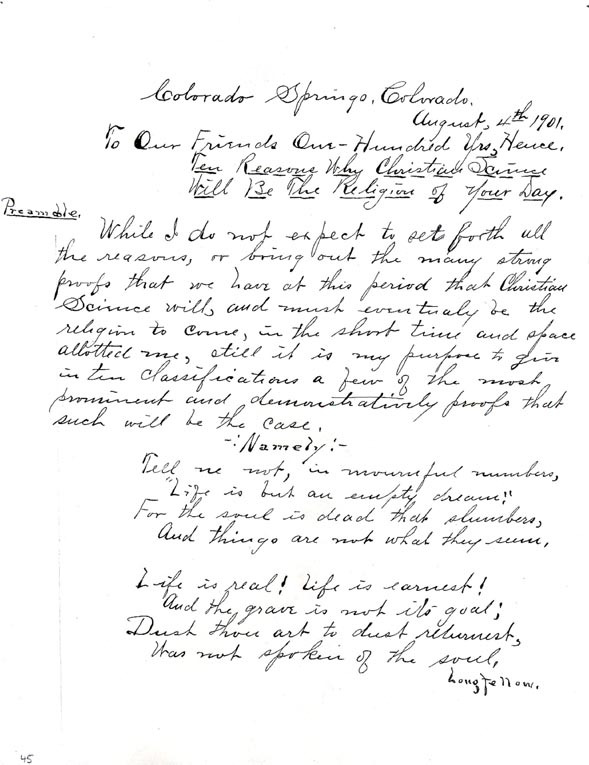 Colorado Springs, Colorado.
August, 4th 1901.
To Our Friends One-Hundred Yrs, Hence.
Ten Reasons Why Christian Science
Will Be The Religion of Your Day.
Preamble.
While I do not expect to sets forth all
the reasons, or bring out the many strong
proofs that we have at this period that Christian
Science will, and must eventualy be the
religion to come, in the short time and space
allotted me, still it is my purpose to give
in ten classifications a few of the most
prominent and demonstratively proofs that
such will be the case.
-:Namely:-
Tell me not, in mournful numbers,
"Life is but an empty dream!"
For the soul is dead that slumbers,
And things are not what they seem.
Life is real! Life is earnest!
And the grave is not its goal;
Dust thou art to dust returnest,
Was not spoken of the soul.
Longfellow.
45